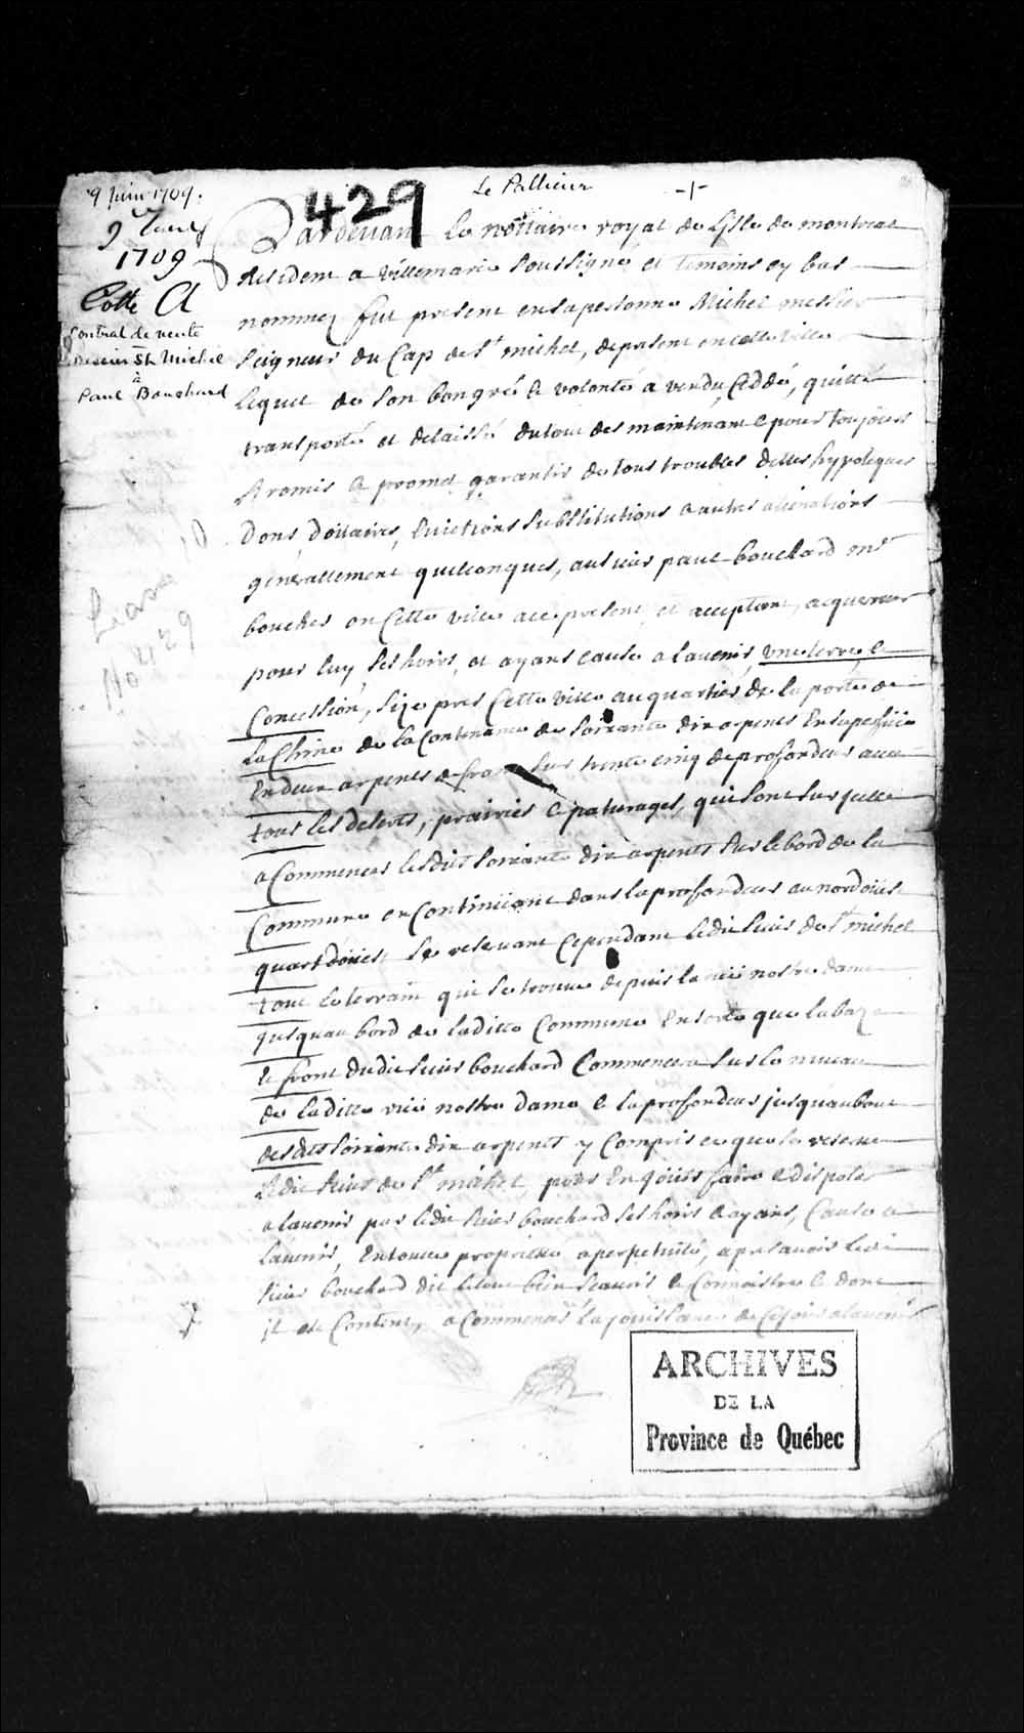 9 Juin 1709.
Le Pallieur
-1-
429
9 Juin
1709
Cotte A
Contrat de vente
Messier St Michel
à
Paul Bouchard
Pardevant Le nottaire royal de lisle de montreal
Resident a villemarie soussigné et temoins cy bas
nommez fut present en sa personne Michel messier
seigneur du Cap de st michel, de present en cette ville
lequel de son bongré & volonté a vendu, ceddé, quitté
transporté et delaissé du tout des maintenant & pour toujours
& promis & promet garantir de tous troubles dettes hypoteques
Dons, Doüaires, Evictions substitutions & autres alienations
generallement quelconques, au sieur paul bouchard md
boucher en Cette ville a ce present et acceptant, acquereur
pour luy, ses hoirs, et ayans cause a lavenir, une terre &
Concession, size pres Cette ville au quartier de la porte de
La Chine de la Contenance de soixante dix arpents En superficie
En deux arpents de front sur trente cinq de profondeur avec
tous les deserts, prairies & paturages, qui sont sur icelle
a Commencer lesdits soixante dix arpents sur le bord de la
Commune en Continüant dans la profondeur au nordoüest
quart doüest se reservant Cependant ledit sieur de st michel
tout le terrain qui se trouve depuis la rüe nostre dame
jusquau bord de laditte Commune En sorte que la baze
& front dudit sieur bouchard Commencera sur le niveau
de laditte rüe nostre dame & la profondeur jusquau bout
desdits soixante dix arpents y Compris ce que se reserve
ledit sieur de st michel pour En joüir faire & disposer
a lavenir par ledit sieur bouchard ses hoirs & ayans, Cause a
lavenir, En toute proprieté a perpetuité, apres avoir ledit
sieur bouchard dit le tout bien sçavoir & Connoistre & dont
il est Content, a Commencer la joüissance de Ce jour a lavenir
No 1239
ARCHIVES
DE LA
Province de Québec